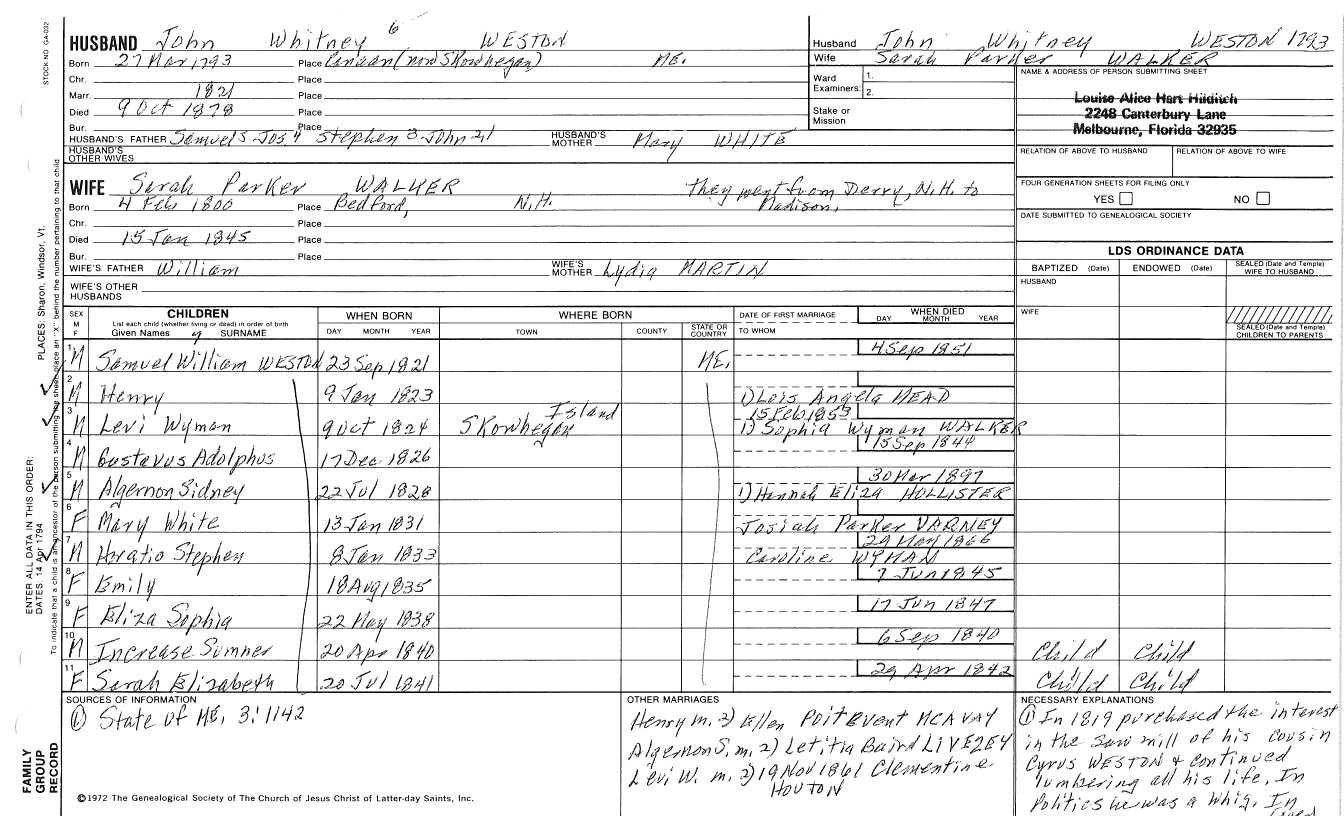 STOCK NO. GA-032
HUSBAND John Whitney 6 WESTON
Born 27 Mar 1793 Place Canaan (now Skowhegan) ME.
Chr. Place
Marr. 1821 Place
Died 9 Oct 1878 Place
Bur. Place
HUSBAND'S FATHER Samuel 5 Jos. 4 Stephen 3 John 21 HUSBAND'S MOTHER Mary WHITE
HUSBAND'S OTHER WIVES
WIFE Sarah Parker WALKER
they went from Derry, N.H. to
Madison,
Born 4 Feb 1800 Place Bedford, N.H.
Chr. Place
Died 15 Jan 1845 Place
Bur. Place
WIFE'S FATHER William WIFE'S MOTHER Lydia MARTIN
WIFE'S OTHER HUSBANDS
Husband John Whitney WESTON 1793
Wife Sarah Parker WALKER
Ward Examiners: 1. 2.
Stake or Mission
NAME & ADDRESS OF PERSON SUBMITTING SHEET
Louise Alice Hart Hilditch
2248 Canterbury Lane
Melbourne, Florida 32935
RELATION OF ABOVE TO HUSBAND RELATION OF ABOVE TO WIFE
FOUR GENERATION SHEETS FOR FILING ONLY
YES NO
DATE SUBMITTED TO GENEALOGICAL SOCIETY
LDS ORDINANCE DATA
BAPTIZED (Date) ENDOWED (Date) SEALED (Date and Temple) WIFE TO HUSBAND
HUSBAND
WIFE
SEALED (Date and Temple) CHILDREN TO PARENTS
SEX M F
CHILDREN
List each child (whether living or dead) in order of birth
Given Names SURNAME
WHEN BORN DAY MONTH YEAR
WHERE BORN TOWN COUNTY STATE OR COUNTRY
DATE OF FIRST MARRIAGE
TO WHOM
WHEN DIED DAY MONTH YEAR
1 M Samuel William WESTON 23 Sep 1821 ME. 4 Sep 1851
2 M Henry 9 Jan 1823 1) Lois Angela MEAD
3 M Levi Wyman 9 Oct 1824 Skowhegan Island 15 Feb 1853 1) Sophia Wyman WALKER
4 M Gustavus Adolphus 17 Dec 1826 15 Sep 1844
5 M Algernon Sidney 22 Jul 1828 30 Mar 1897 1) Hannah Eliza HOLLISTER
6 F Mary White 13 Jan 1831 Josiah Parker VARNEY
7 M Horatio Stephen 8 Jan 1833 29 1866 Caroline WYMAN
8 F Emily 18 Aug 1835 7 Jun 1845
9 F Eliza Sophia 22 May 1838 17 Jun 1847
10 M Increase Sumner 20 Apr 1840 6 Sep 1840 Child Child
11 F Sarah Elizabeth 20 Jul 1841 29 Apr 1842 Child Child
SOURCES OF INFORMATION
① State of ME, 3:1142
OTHER MARRIAGES
Henry m. 2) Ellen POITEVENT MCAVAY
Algernon S. m. 2) Letitia Baird LIVEZEY
Levi W. m. 2) 19 Nov 1861 Clementine
HOUTON
NECESSARY EXPLANATIONS
① In 1819 purchased the interest
in the saw mill of his cousin
Cyrus WESTON & continued
lumbering all his life. In
Politics he was a Whig. In
©1972 The Genealogical Society of The Church of Jesus Christ of Latter-day Saints, Inc.
FAMILY GROUP RECORD
ENTER ALL DATA IN THIS ORDER:
DATES: 14 Apr 1794
PLACES: Sharon, Windsor, Vt.
To indicate that a child is an ancestor of the person submitting the sheet, place an "X" behind the number pertaining to that child